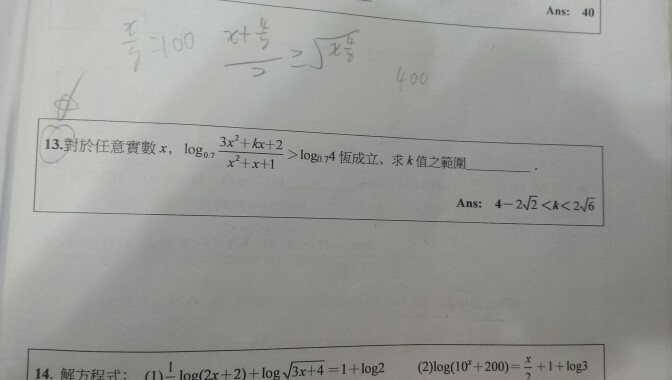 Ans: 40
x/y=100 (x+4/y)/2 ≥ √(x4/y)
400
13.對於任意實數 x，log₀.₇ (3x²+kx+2)/(x²+x+1) >log₀.₇4 恆成立，求 k 值之範圍________．
Ans: 4－2√2 <k<2√6
14. 解方程式： (1) 1/2 log(2x+2)＋log√(3x+4)＝1＋log2 (2)log(10ˣ＋200)＝x/2＋1＋log3